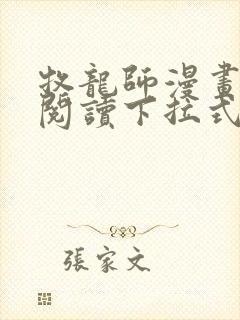 牧龍師漫畫
閱讀下拉式
張家文